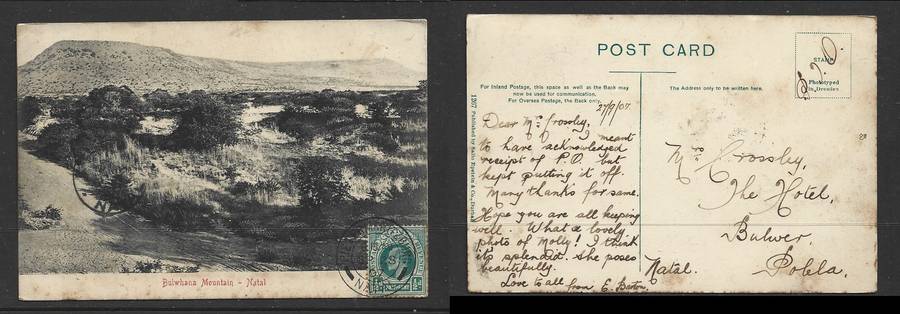 Bulwhana Mountain - Natal
POST CARD
STAMP
Phototyped
in Dresden
For Inland Postage, this space as well as the Back may
now be used for communication.
For Overseas Postage, the Back only.
The Address only to be written here.
1207 Published by Sallo Epstein & Co., Durban
27/9/07.
Dear Mrs Crossley,
I meant
to have acknowledged
receipt of P.O. but
kept putting it off.
Many thanks for same.
Hope you are all keeping
well. What a lovely
photo of Molly! I think
it's splendid. She poses
beautifully.
Love to all from E. Barton.
Mrs Crossley,
The Hotel,
Bulwer.
Polela.
Natal.